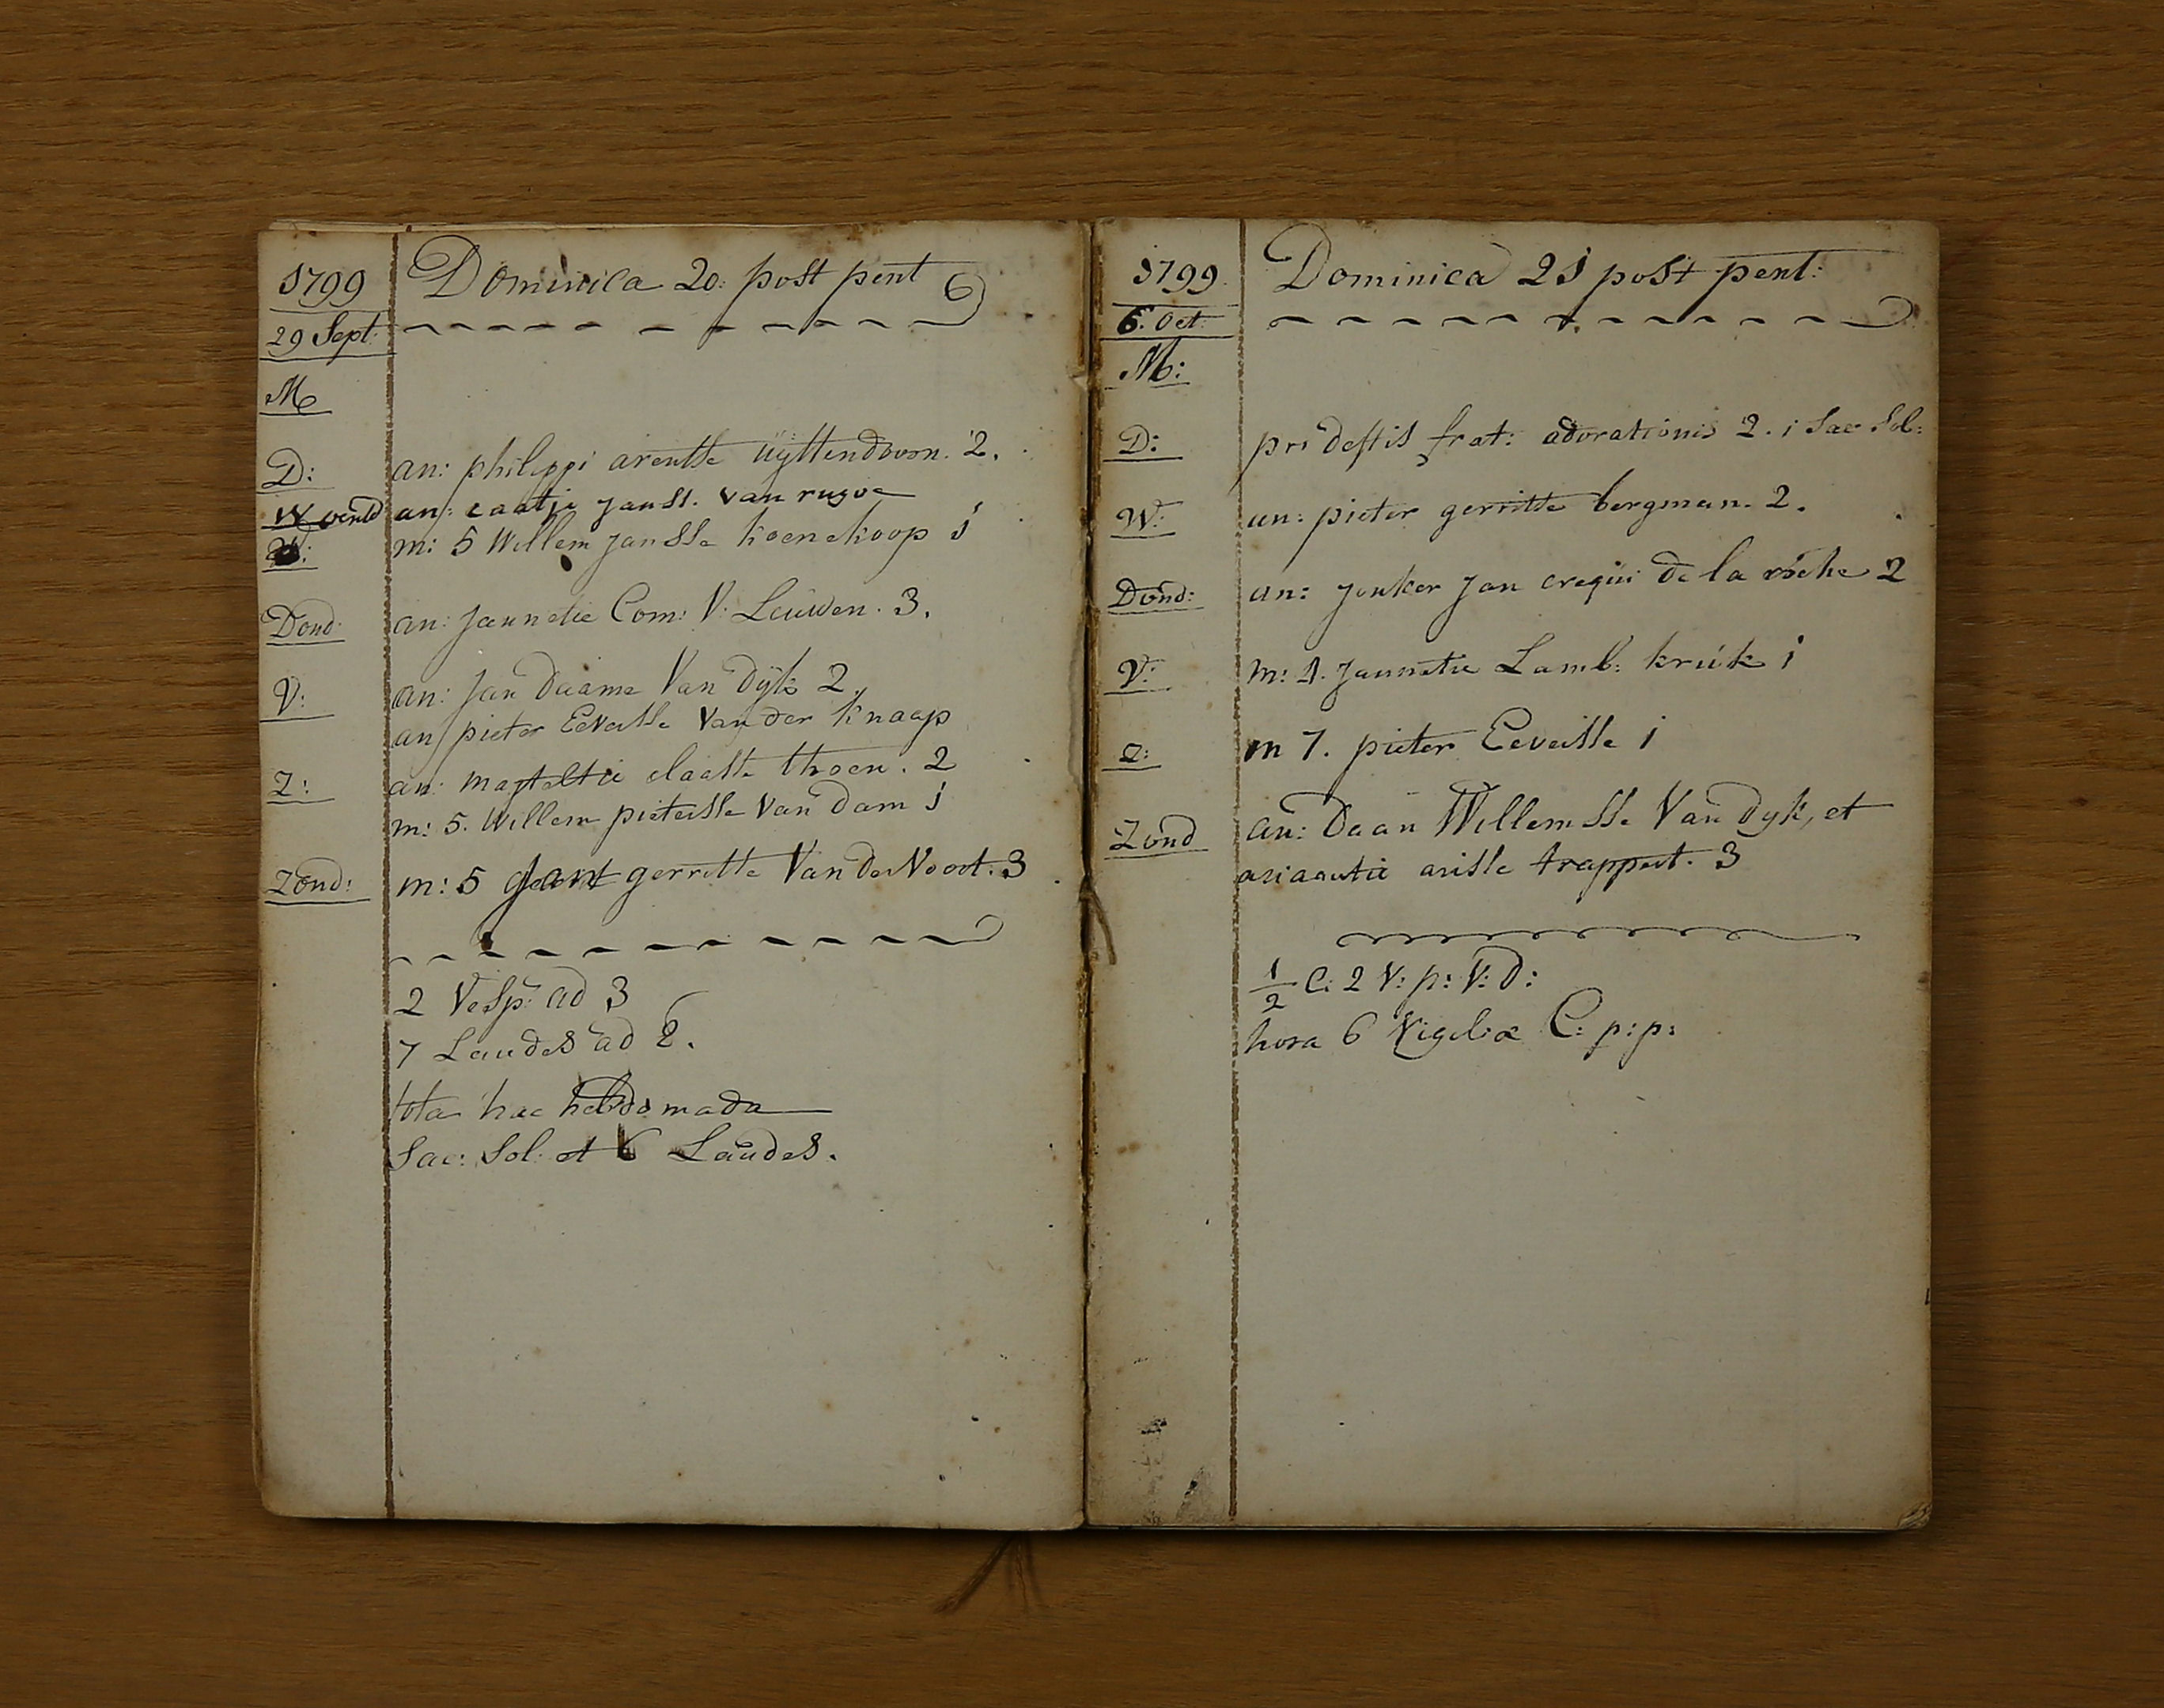 1799 Dominica 20: post pent
29 Sept:
M
D: an: philippi arentse üÿttendoorn. 2.
Woend an: caatje Janss. van
W: m: 5 Willem Jansse koenekoop 1
Dond: an: Jannetie Corn: V: Leüwen. 3.
V: an: Jan Daame Van Dÿk 2.
an pieter Eevertse Van der Knaap
Z: an: magteltie claasse thoen. 2
m: 5. Willem pieterse Van Dam 1
Zond: m: 5 gerritse Van der Noot. 3
2 Vesp: ad 3
7 Laudes ad
tota hac hebdomada
Sac: Sol: et 6 Laudes.
1799. Dominica 21 post pent:
6. Oct:
M:
D: pri deftis frat: adorationis 2. 1 Sac Sol:
W: an: pieter gerritse bergman. 2.
Dond: an: jonker Jan creqüi de la roche 2
V: m: 1. Jannetie Lamb: krük 1
Z: m 7. pieter Eevertse 1
Zond an: Daan Willemsse Van Dyk, et
ariaantie arisse trappert. 3
1/2 C: 2 V: p: V: D:
hora 6 Vigiliæ C: p: p: